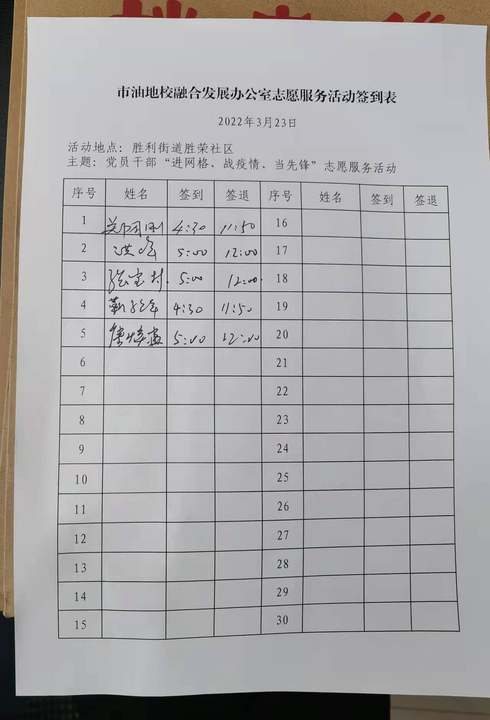 市油地校融合发展办公室志愿服务活动签到表
2022年3月23日
活动地点：胜利街道胜荣社区
主题：党员干部“进网格、战疫情、当先锋”志愿服务活动
序号 姓名 签到 签退 序号 姓名 签到 签退
1 4:30 11:50 16
2 5:00 12:00 17
3 5:00 12:00 18
4 4:30 11:50 19
5 5:00 12:00 20
6 21
7 22
8 23
9 24
10 25
11 26
12 27
13 28
14 29
15 30